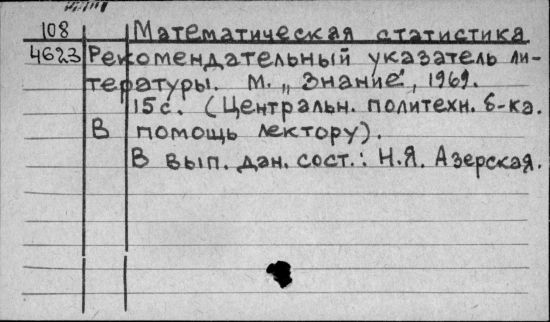 108 Математическая статистика
4623 Рекомендательный указатель ли-
тературы. М. „Знание", 1969.
15с. (Центральн. политехн. б-ка.
В помощь лектору).
В вып. дан. сост.: Н.Я. Азерская.